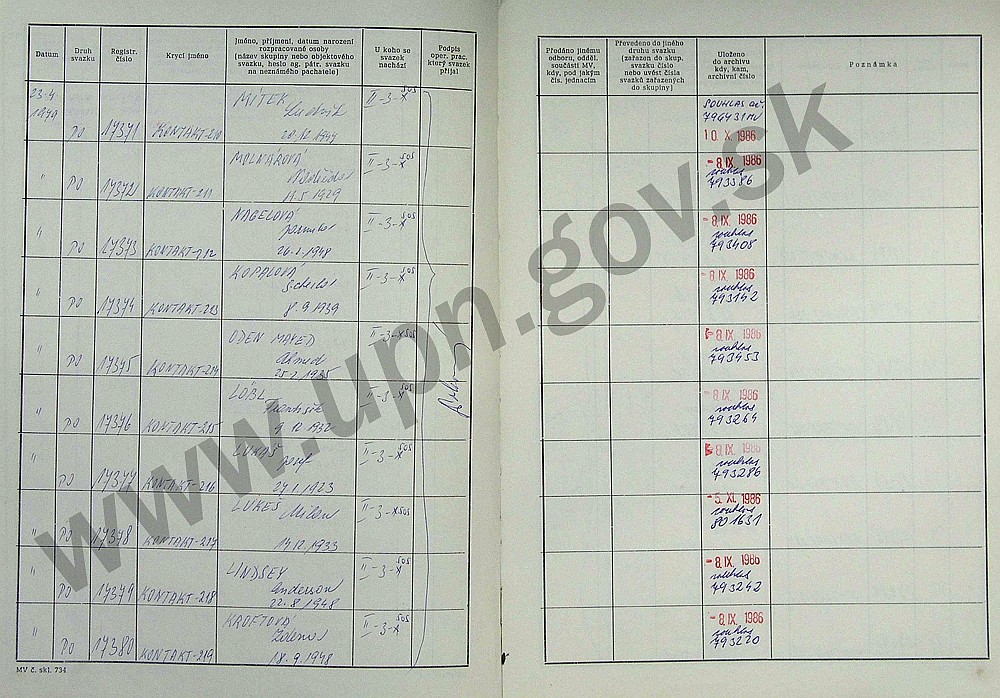 Datum
Druh
svazku
Registr.
číslo
Krycí jméno
Jméno, příjmení, datum narození
rozpracované osoby
(název skupiny nebo objektového
svazku, heslo ag. pátr. svazku
na neznámého pachatele)
U koho se
svazek
nachází
Podpis
oper. prac.
který svazek
přijal
Předáno jinému
odboru, odděl.
součásti MV,
kdy, pod jakým
čís. jednacím
Převedeno do jiného
druhu svazku
(zařazen do skup.
svazku číslo
nebo uvést čísla
svazků zařazených
do skupiny)
Uloženo
do archivu
kdy, kam,
archivní číslo
Poznámka
23.4.
1979
PO 17371 KONTAKT-210
MITEK
Ludvík
20.12.1947
II-3-X 505
SOUHLAS
796431
10. X. 1986
" PO 17372 KONTAKT-211
MOLNÁROVÁ
II-3-X 505
-8. IX. 1986
souhlas
793386
" PO 17373 KONTAKT-212
NAGELOVÁ
26.1.1948
II-3-X 505
-8. IX. 1986
souhlas
793408
" PO 17374 KONTAKT-213
KOPALOVÁ
8.9.1939
II-3-X 505
-8. IX. 1986
souhlas
793142
" PO 17375 KONTAKT-214
ODEN
Ahmed
II-3-X 505
-8. IX. 1986
souhlas
793453
" PO 17376 KONTAKT-215
LÖBL
František
7.12.1932
II-3-X 505
-8. IX. 1986
souhlas
793264
" PO 17377 KONTAKT-216
LUKÁŠ
Josef
27.1.1923
II-3-X 505
-8. IX. 1986
souhlas
793286
" PO 17378 KONTAKT-217
LUKEŠ Milan
14.12.1933
II-3-X 505
-5. XI. 1986
souhlas
801631
" PO 17379 KONTAKT-218
LINDSEY
Anderson
22.8.1948
II-3-X 505
-8. IX. 1986
souhlas
793242
" PO 17380 KONTAKT-219
KROFTOVÁ
Zdena
18.9.1948
II-3-X 505
-8. IX. 1986
souhlas
793220
MV č. skl. 734
www.upn.gov.sk